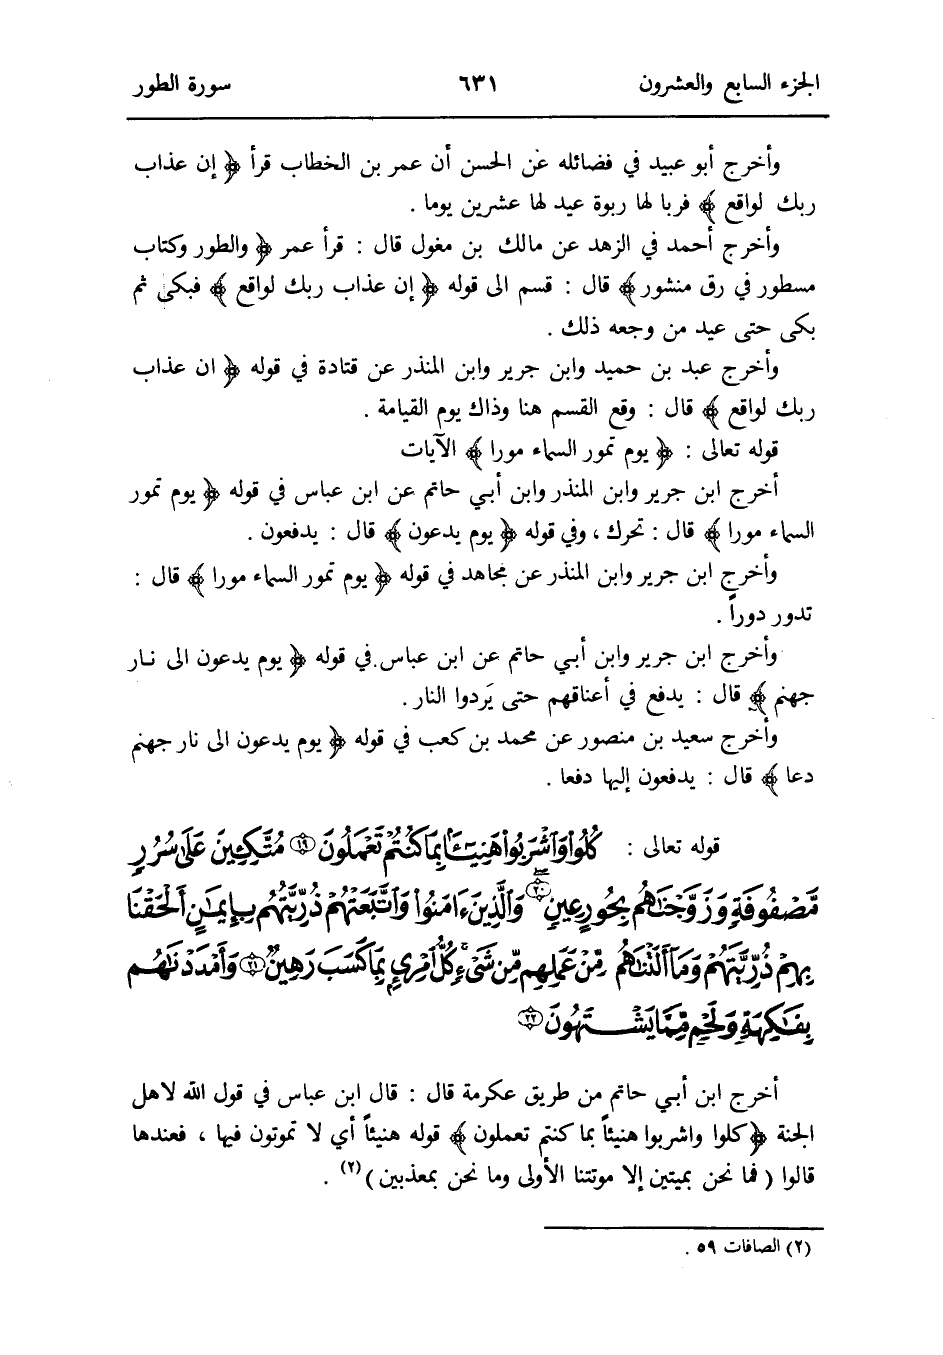 الجزء السابع والعشرون ٦٣١ سورة الطور
وأخرج أبو عبيد في فضائله عن الحسن أن عمر بن الخطاب قرأ ﴿ إن عذاب
ربك لواقع ﴾ فربا لها ربوة عيد لها عشرين يوما .
وأخرج أحمد في الزهد عن مالك بن مغول قال : قرأ عمر ﴿ والطور وكتاب
مسطور في رق منشور ﴾ قال : قسم الى قوله ﴿ إن عذاب ربك لواقع ﴾ فبكى ثم
بكى حتى عيد من وجعه ذلك .
وأخرج عبد بن حميد وابن جرير وابن المنذر عن قتادة في قوله ﴿ ان عذاب
ربك لواقع ﴾ قال : وقع القسم هنا وذاك يوم القيامة .
قوله تعالى : ﴿ يوم تمور السماء مورا ﴾ الآيات
أخرج ابن جرير وابن المنذر وابن أبي حاتم عن ابن عباس في قوله ﴿ يوم تمور
السماء مورا ﴾ قال : تحرك ، وفي قوله ﴿ يوم يدعون ﴾ قال : يدفعون .
وأخرج ابن جرير وابن المنذر عن مجاهد في قوله ﴿ يوم تمور السماء مورا ﴾ قال :
تدور دوراً .
وأخرج ابن جرير وابن أبي حاتم عن ابن عباس في قوله ﴿ يوم يدعون الى نار
جهنم ﴾ قال : يدفع في أعناقهم حتى يَردوا النار .
وأخرج سعيد بن منصور عن محمد بن كعب في قوله ﴿ يوم يدعون الى نار جهنم
دعا ﴾ قال : يدفعون إليها دفعا .
قوله تعالى : كُلُوا وَاشْرَبُوا هَنِيئًا بِمَا كُنتُمْ تَعْمَلُونَ ١٩ مُتَّكِئِينَ عَلَىٰ سُرُرٍ
مَّصْفُوفَةٍ وَزَوَّجْنَاهُم بِحُورٍ عِينٍ ٢٠ وَالَّذِينَ ءَامَنُوا وَاتَّبَعَتْهُمْ ذُرِّيَّتُهُم بِإِيمَانٍ أَلْحَقْنَا
بِهِمْ ذُرِّيَّتَهُمْ وَمَا أَلَتْنَاهُم مِّنْ عَمَلِهِم مِّن شَيْءٍ كُلُّ امْرِئٍ بِمَا كَسَبَ رَهِينٌ ٢١ وَأَمْدَدْنَاهُم
بِفَاكِهَةٍ وَلَحْمٍ مِّمَّا يَشْتَهُونَ ٢٢
أخرج ابن أبي حاتم من طريق عكرمة قال : قال ابن عباس في قول الله لاهل
الجنة ﴿ كلوا واشربوا هنيئاً بما كنتم تعملون ﴾ قوله هنيئاً أي لا تموتون فيها ، فعندها
قالوا ( فما نحن بميتين إلا موتتنا الأولى وما نحن بمعذبين ) (٢) .
(٢) الصافات ٥٩ .